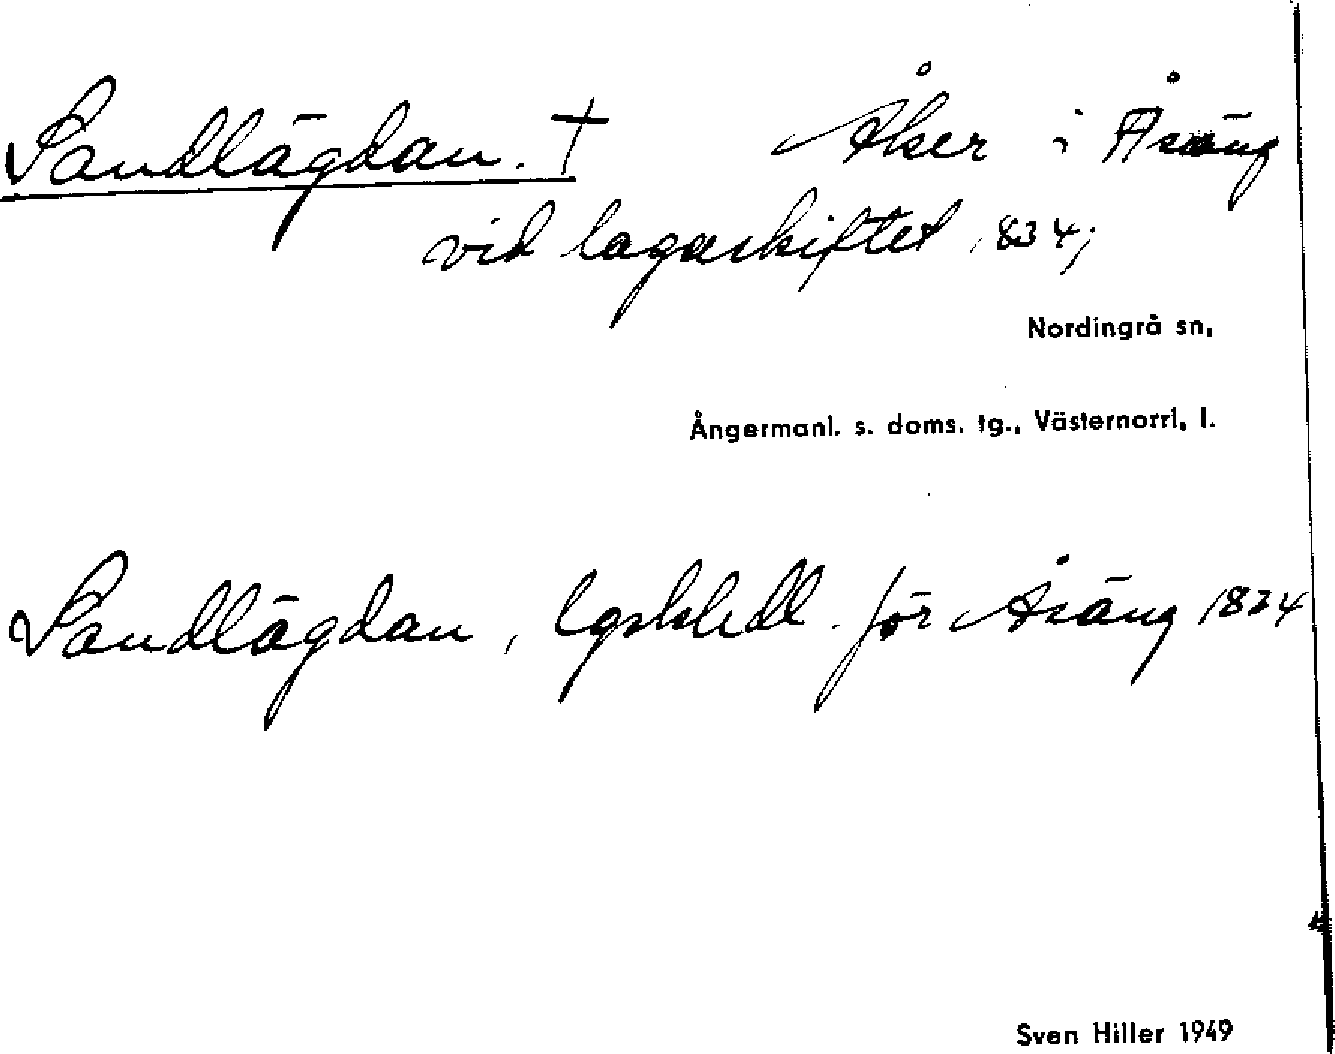 Sandlägdan. † Åker i Åsäng
vid lagaskiftet 1834;
Nordingrå sn,
Ångermanl. s. doms. tg., Västernorrl. l.
Sandlägdan, för Åsäng 1834
Sven Hiller 1949